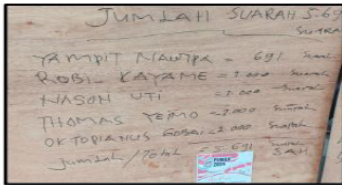 JUMLAH SUARAH 5.691
SUARA
YAMPIT NAWIPA = 691 Suarah
ROBI KAYAME = 1.000 Suarah
NASON UTI = 1.000 Suarah
THOMAS YEIMO = 2.000 Suarah
OKTOPIANUS GOBAI = 1.000 Suarah
Jumlah / Total = 5.691 SAH
PEMILU